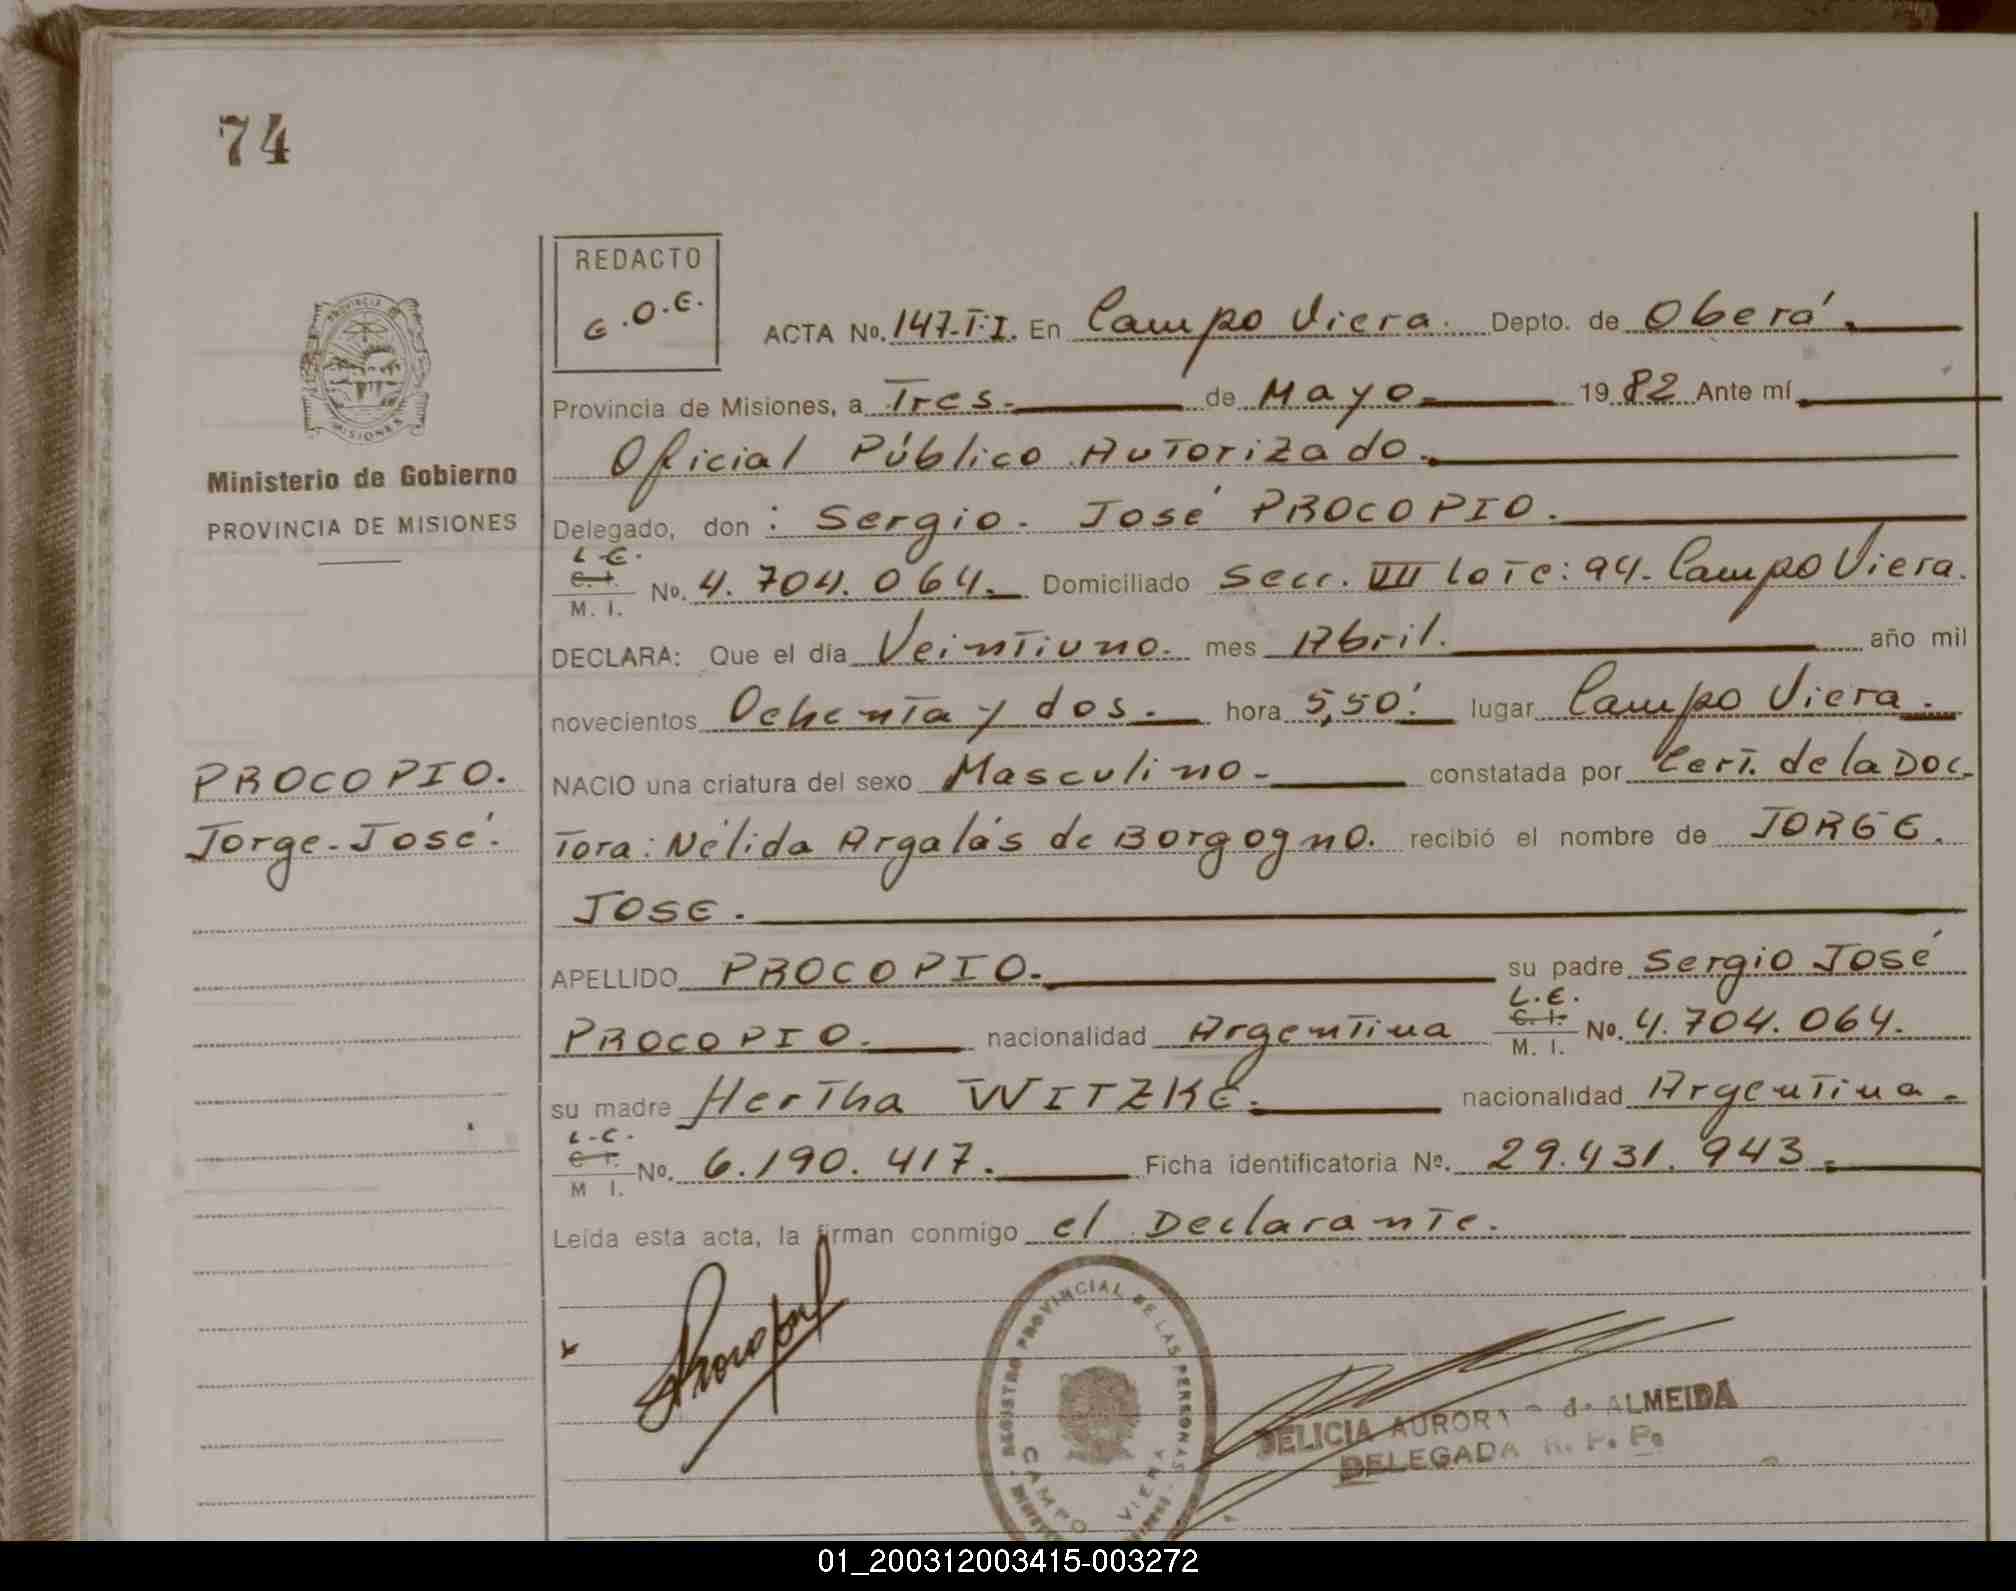 74
REDACTO
G.O.E.
PROVINCIA
MISIONES
Ministerio de Gobierno
PROVINCIA DE MISIONES
ACTA Nº. 147-T:I. En Campo Viera. Depto. de Oberá.
Provincia de Misiones, a Tres. de Mayo. 1982 Ante mí
Oficial Público Autorizado.
Delegado, don : Sergio. José PROCOPIO.
L.E.
C. I.
M. I. Nº. 4.704.064. Domiciliado Secc. VIII Lote: 94. Campo Viera.
DECLARA: Que el día Veintiuno. mes Abril. año mil
novecientos Ochenta y dos. hora 5,50' lugar Campo Viera.
NACIO una criatura del sexo Masculino. constatada por Cert. de la Doc-
tora: Nélida Argalás de Borgogno. recibió el nombre de JORGE.
JOSE.
PROCOPIO.
Jorge-José.
APELLIDO PROCOPIO. su padre Sergio José
PROCOPIO. nacionalidad Argentina L.E. C. I. M. I. Nº. 4.704.064.
su madre Hertha WITZKE. nacionalidad Argentina.
L.C.
C. I.
M I. Nº. 6.190.417. Ficha identificatoria Nº. 29.431.943.
Leída esta acta, la firman conmigo el Declarante.
REGISTRO PROVINCIAL DE LAS PERSONAS
CAMPO VIERA
DELICIA AURORA de ALMEIDA
DELEGADA R. P. P.
01_200312003415-003272